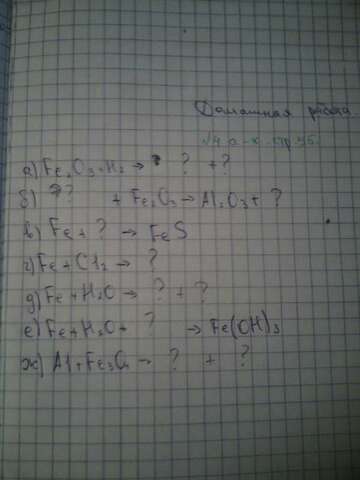 Домашная работа
№4 а-ж. стр 95.
а) Fe₂O₃+H₂ → ? + ?
б) ? + Fe₂O₃ → Al₂O₃ + ?
в) Fe + ? → FeS
г) Fe + Cl₂ → ?
д) Fe + H₂O → ? + ?
е) Fe + H₂O + ? → Fe(OH)₃
ж) Al + Fe₃O₄ → ? + ?